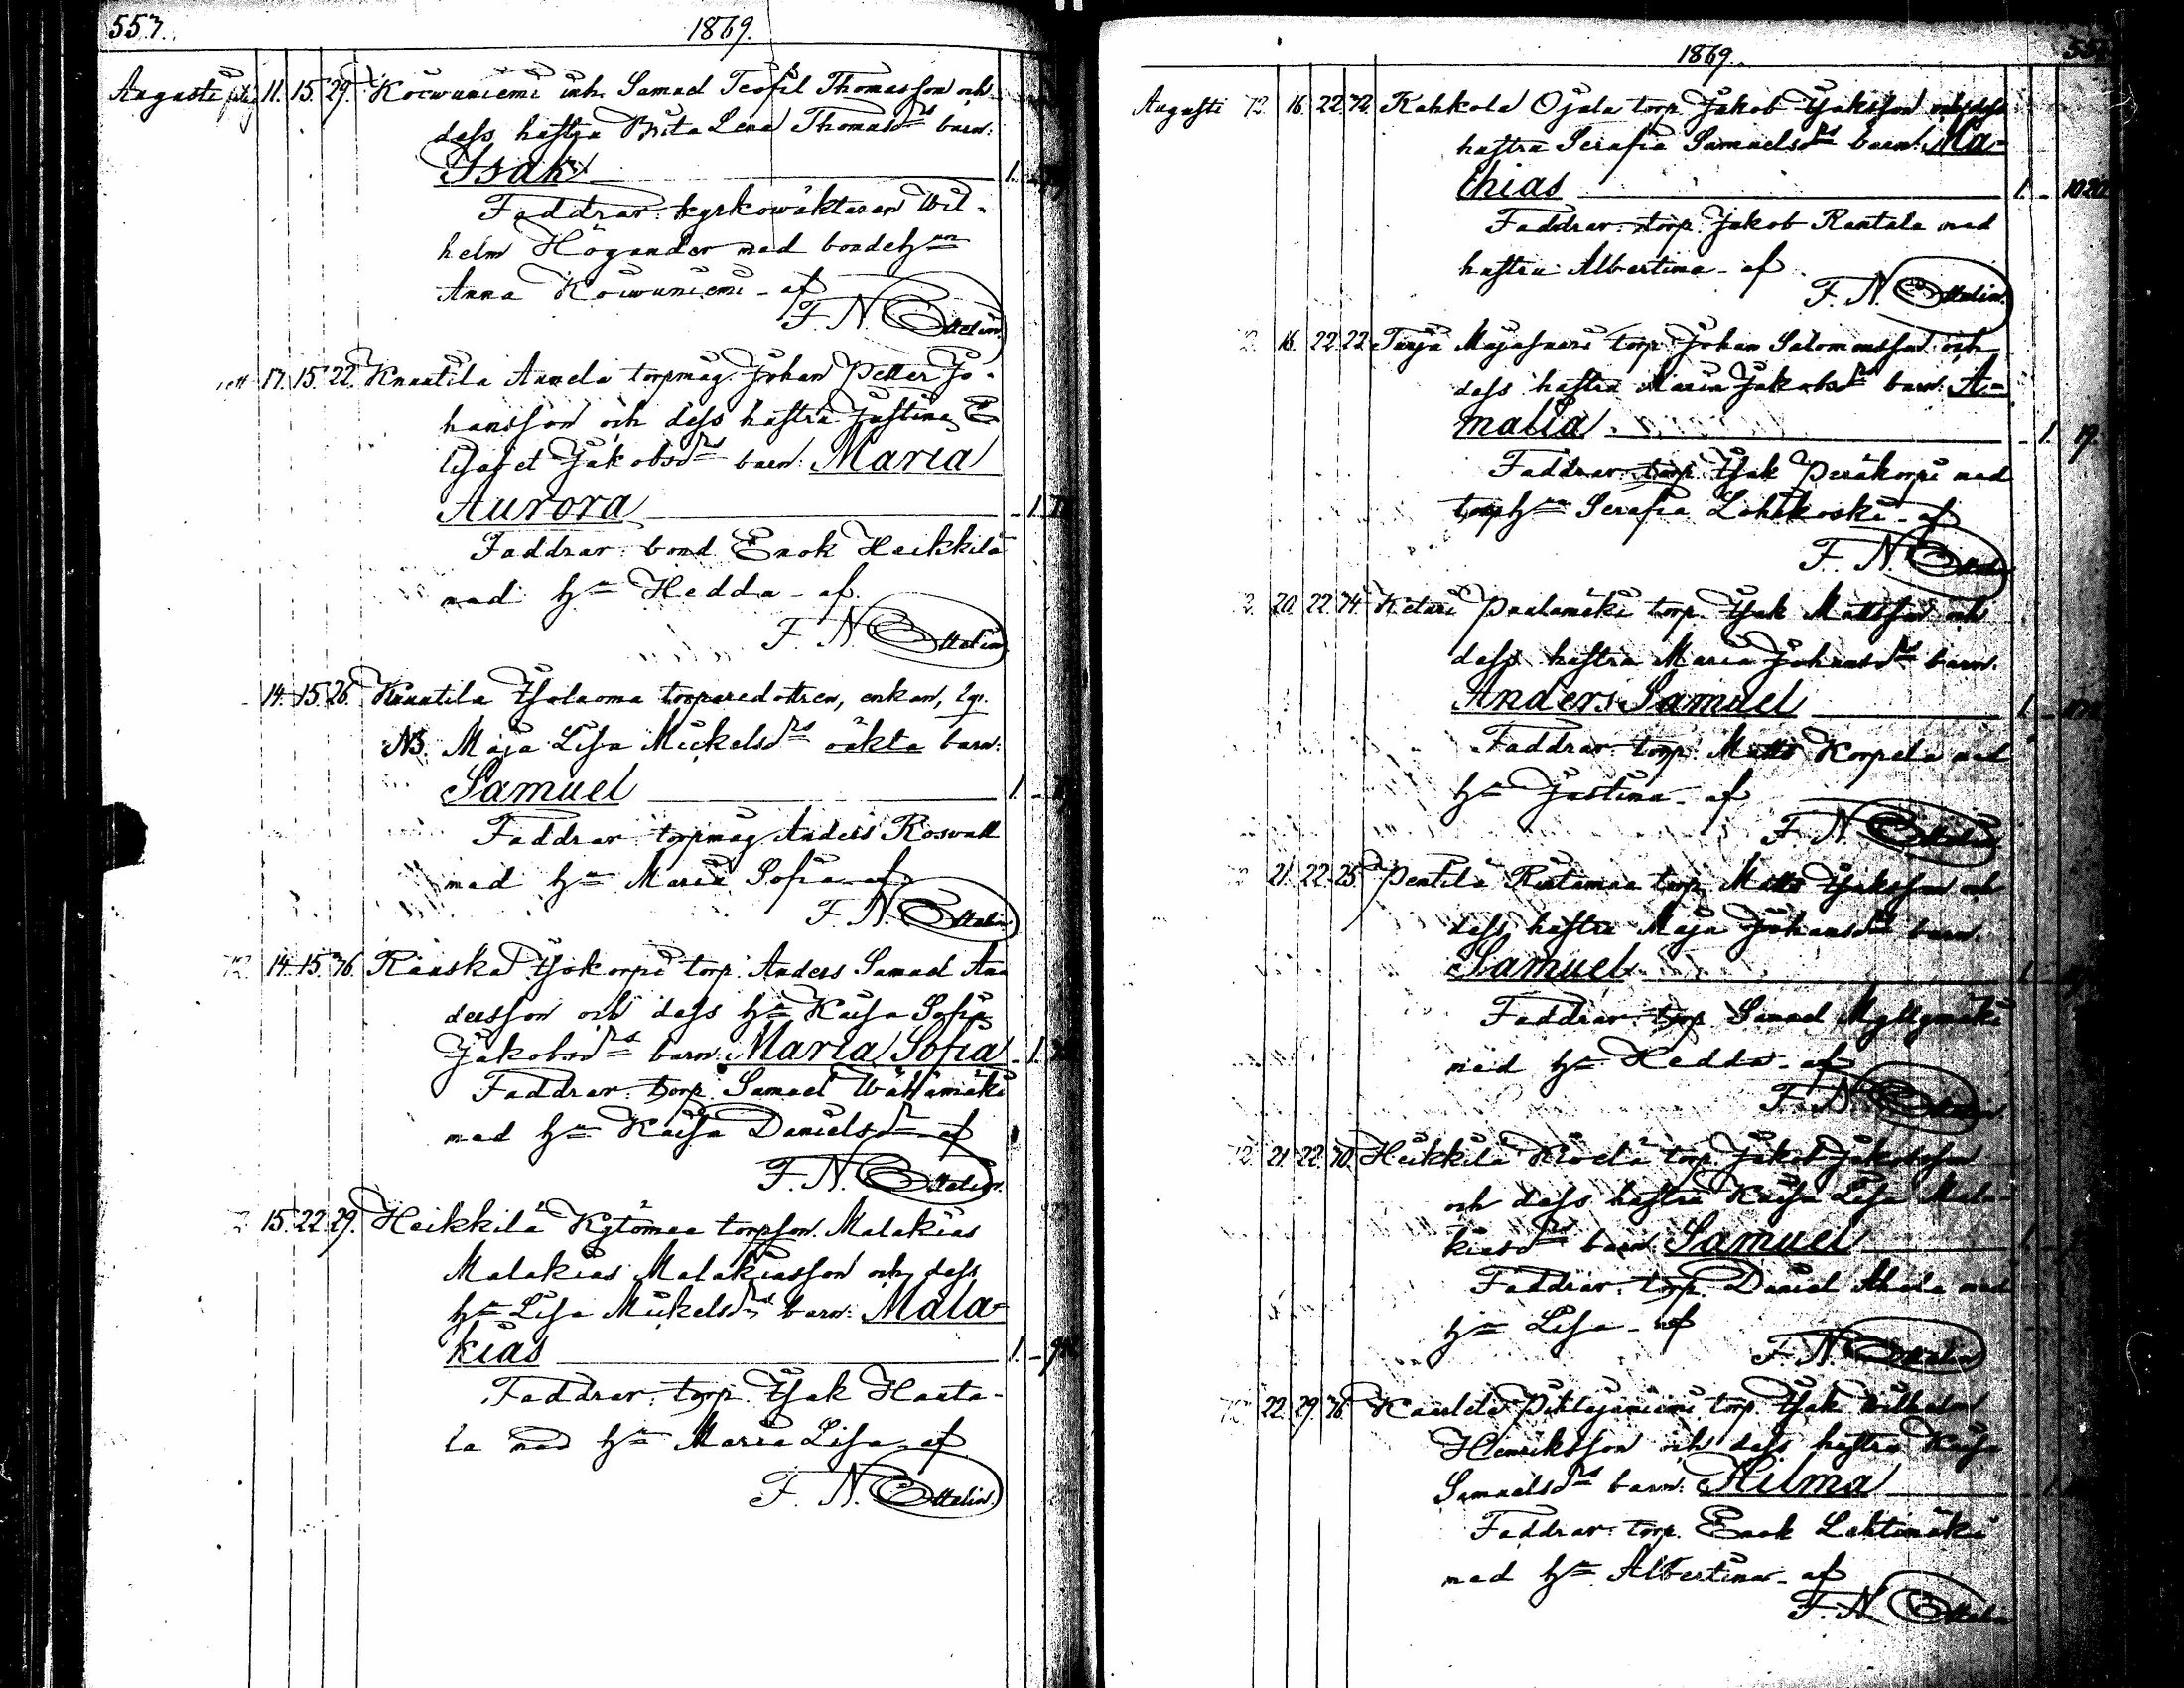 553.
1869.
Augusti 11. 15. 29. Koiwuniemi inh. Samuel Teofil Thomasson och
dess hustru Brita Lena Thomasdr barn:
Isak 1.
Faddrar: kyrkowäktaren Wil-
helm Högander med bondehn
Anna Koiwuniemi - af
F. N. Ottelin.
17. 15. 22. Knuutila Annela torpmåg Johan Petter Jo-
hansson och dess hustru Justina E-
lisabet Jakobsdr barn: Maria
Aurora 1.
Faddrar: bond. Enok Heikkilä
med hn Hedda - af
F. N. Ottelin
14. 15. 26. Knuutila Isoluoma torparedottren, enkan,
NB. Maja Lisa Mickelsdr oäkta barn:
Samuel 1.
Faddrar: torpmåg Anders Roswall
med hn Maria Sofia - af
F. N. Ottelin
14. 15. 36. Känskä Isokorpi torp. Anders Samuel An-
dersson och dess hn Kaisa Sofia
Jakobsdr barn: Maria Sofia 1.
Faddrar: torp. Samuel Wättämäki
med hn Kaisa Danielsdr - af
F. N. Ottelin.
15. 22. 29. Heikkilä Kytömaa torpson. Malakias
Malakias Malakiasson och dess
hn Lisa Mickelsdr barn: Mala-
kias 1.
Faddrar: torp. Isak Hauta-
la med hn Maria Lisa - af
F. N. Ottelin.
1869.
Augusti 16. 22. 72. Kahkola Ojala torp. Jakob Isaksson och dess
hustru Serafia Samuelsdr barn: Ma-
thias 1.
Faddrar: torp. Jakob Rantala med
hustru Albertina - af
F. N. Ottelin.
16. 22. 22. Majasaari torp. Johan Salomonsson och
dess hustru Maria Jakobsdr barn: A-
malia 1. 19.
Faddrar: torp. Isak Peräkorpi med
torphn Serafia Lohikoski - af
F. N. Ottelin
20. 22. 74. Ketari Paalamäki torp. Isak Mattsson och
dess hustru Maria Johansdr barn:
Anders Samuel 1.
Faddrar: torp. Matts Korpela med
hn Justina - af
F. N. Ottelin
21. 22. 25. Pentilä Rintamaa torp. Matts Isaksson och
dess hustru Maja Johansdr barn:
Samuel 1.
Faddrar: torp. Samuel Myllymäki
med hn Hedda - af
F. N. Ottelin
21. 22. 70. Heikkilä torp. Jakob Jakobsson
och dess hustru Kaisa Lisa Mala-
kiasdr barn: Samuel 1.
Faddrar: torp. Daniel med
hn Lisa - af
F. N. Ottelin
22. 29. 76. Pihlajaniemi torp. Isak Wilhelm
Henriksson och dess hustru Kaisa
Samuelsdr barn: Hilma 1.
Faddrar: torp. Enok Lehtimäki
med hn Albertina - af
F. N. Ottelin